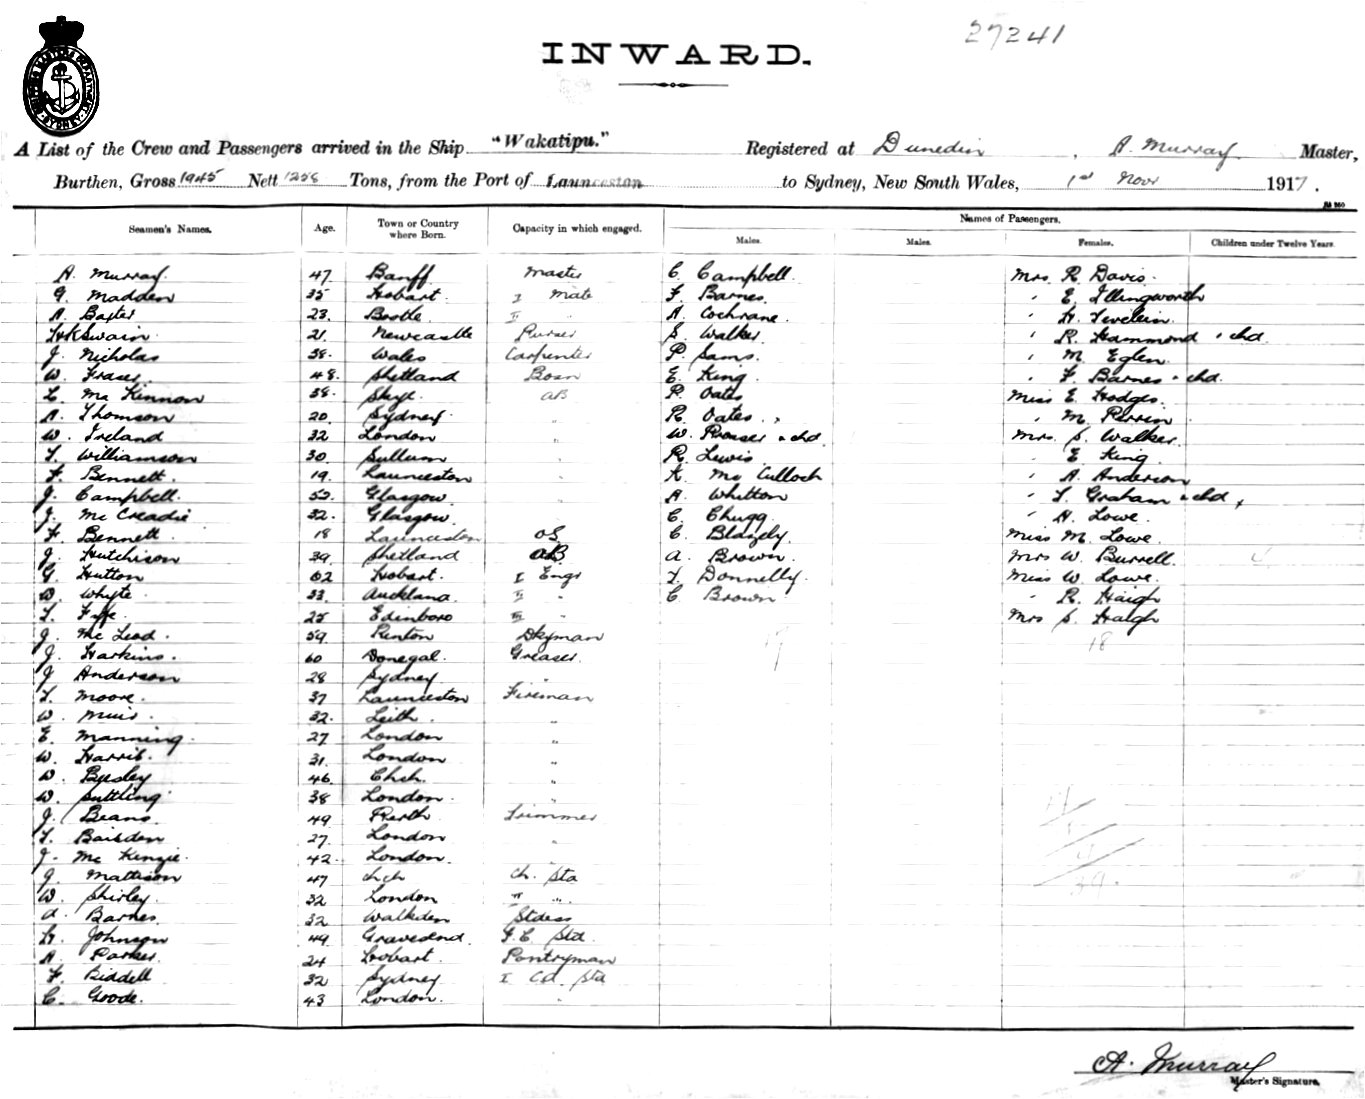 27241
INWARD.
A List of the Crew and Passengers arrived in the Ship "Wakatipu." Registered at Dunedin, A. Murray Master,
Burthen, Gross 1945 Nett 1258 Tons, from the Port of Launceston to Sydney, New South Wales, 1st Novr 1917.
Names of Passengers.
Seamen's Names. Age. Town or Country where Born. Capacity in which engaged. Males. Males. Females. Children under Twelve Years.
A. Murray. 47. Banff Master C. Campbell. Mrs R Davis.
G. Madden 35 Hobart. I Mate F. Barnes. " E. Illingworth
A. Baxter 23. Bootle. II " A. Cochrane. " H.
HK Swain. 21. Newcastle Purser S. Walker. " R. Hammond & chd.
J. Nicholas 38. Wales Carpenter P. Sams. " M. Eglen.
W. Fraser. 48. Shetland Bosn E. King. " F. Barnes & chd.
L. Mc Kinnon 38. Skye. AB P. Oates Miss E. Hodges.
A. Thomson 20. Sydney. " R. Oates. " M. Perrin
W. Ireland 32 London " W. & chd Mrs. S. Walker.
T. Williamson 30. Sullum " R. Lewis " E King.
F. Bennett. 19. Launceston " K. Mc Culloch " A. Anderson
J. Campbell. 52. Glasgow. " A. Whitton " T. Graham & chd,
J. Mc Creadie 32. Glasgow. " C. Chugg. " A. Lowe.
F Bennett. 18 Launceston OS C. Blazely Miss M. Lowe.
J. Hutchison 39. Shetland AB A. Brown. Mrs W. Burrell.
G. Hutton 62 Hobart. I Engr T. Donnelly. Miss W. Lowe.
D. Whyte. 33. Auckland II " C Brown " R. Haigh
T. Fyfe. 25 Edinboro III " Mrs S. Haigh
J. Mc Leod. 59. Renton Dkyman 17 18
J. Harkins. 60 Donegal. Greaser.
J Anderson 28 Sydney "
T. Moore. 37 Launceston Fireman
W. Muir. 32. Leith. "
E. Manning. 27 London "
W. Harris. 31. London "
D. 46. Chch. "
W. Suttling 38 London. "
J. Beans. 49 Perth Trimmer
T. Baisden 27. London "
J. Mc Kenzie. 42. London.
J. Mattison 47 Chch Ch. Std
W. Shirley. 32 London " "
A. Barnes 32 Walkden Stdess
H. Johnson 49 Gravesend. F.C. Std.
A. Parker. 24 Hobart. Pantryman
F. Biddell 32 Sydney I Cd. Std
C. Goode. 43 London. "
39.
A. Murray
Master's Signature.